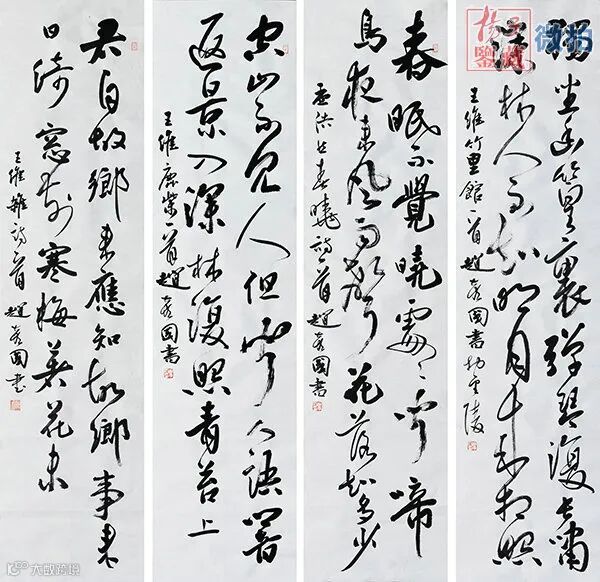 獨坐幽篁裏彈琴復長嘯
深林人不知明月來相照
王維竹里館一首趙國書於陵
春眠不覺曉處々聞啼
鳥夜來風雨聲花落知多少
孟浩然春曉詩一首趙國書
空山不見人但聞人語響
返景入深林復照青苔上
王維鹿柴一首趙國書
君自故鄉來應知故鄉事來
日綺窗前寒梅著花未
王維雜詩一首趙國書
鑒藏
微拍
大数跨境